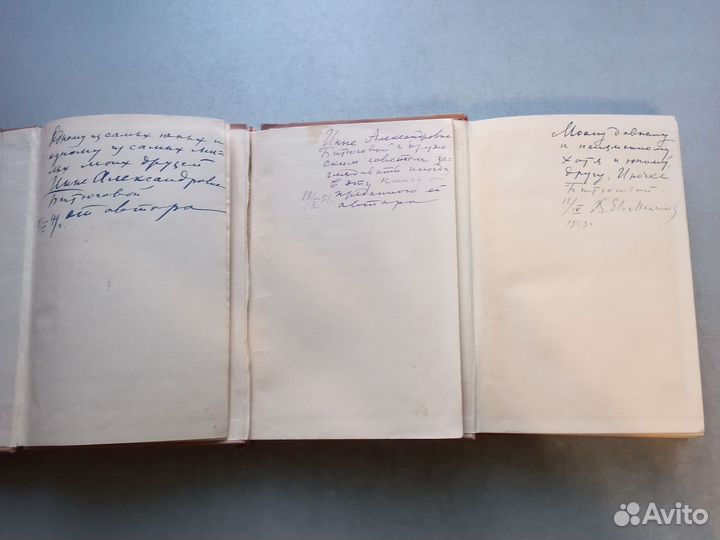 Одному из самых юных и
одному из самых ми-
лых моих друзей
Инне Александровне
Битюговой
от автора
49 г.
Инне Александровне
Битюговой с друже
ским советом за-
глядывать иногда
в эту книгу от
преданного ей
автора
51 г.
Моему давнему
и неизменному
хотя и юному
другу, Иночке
Битюговой
В. Евг. Максимов
1953 г.
Avito